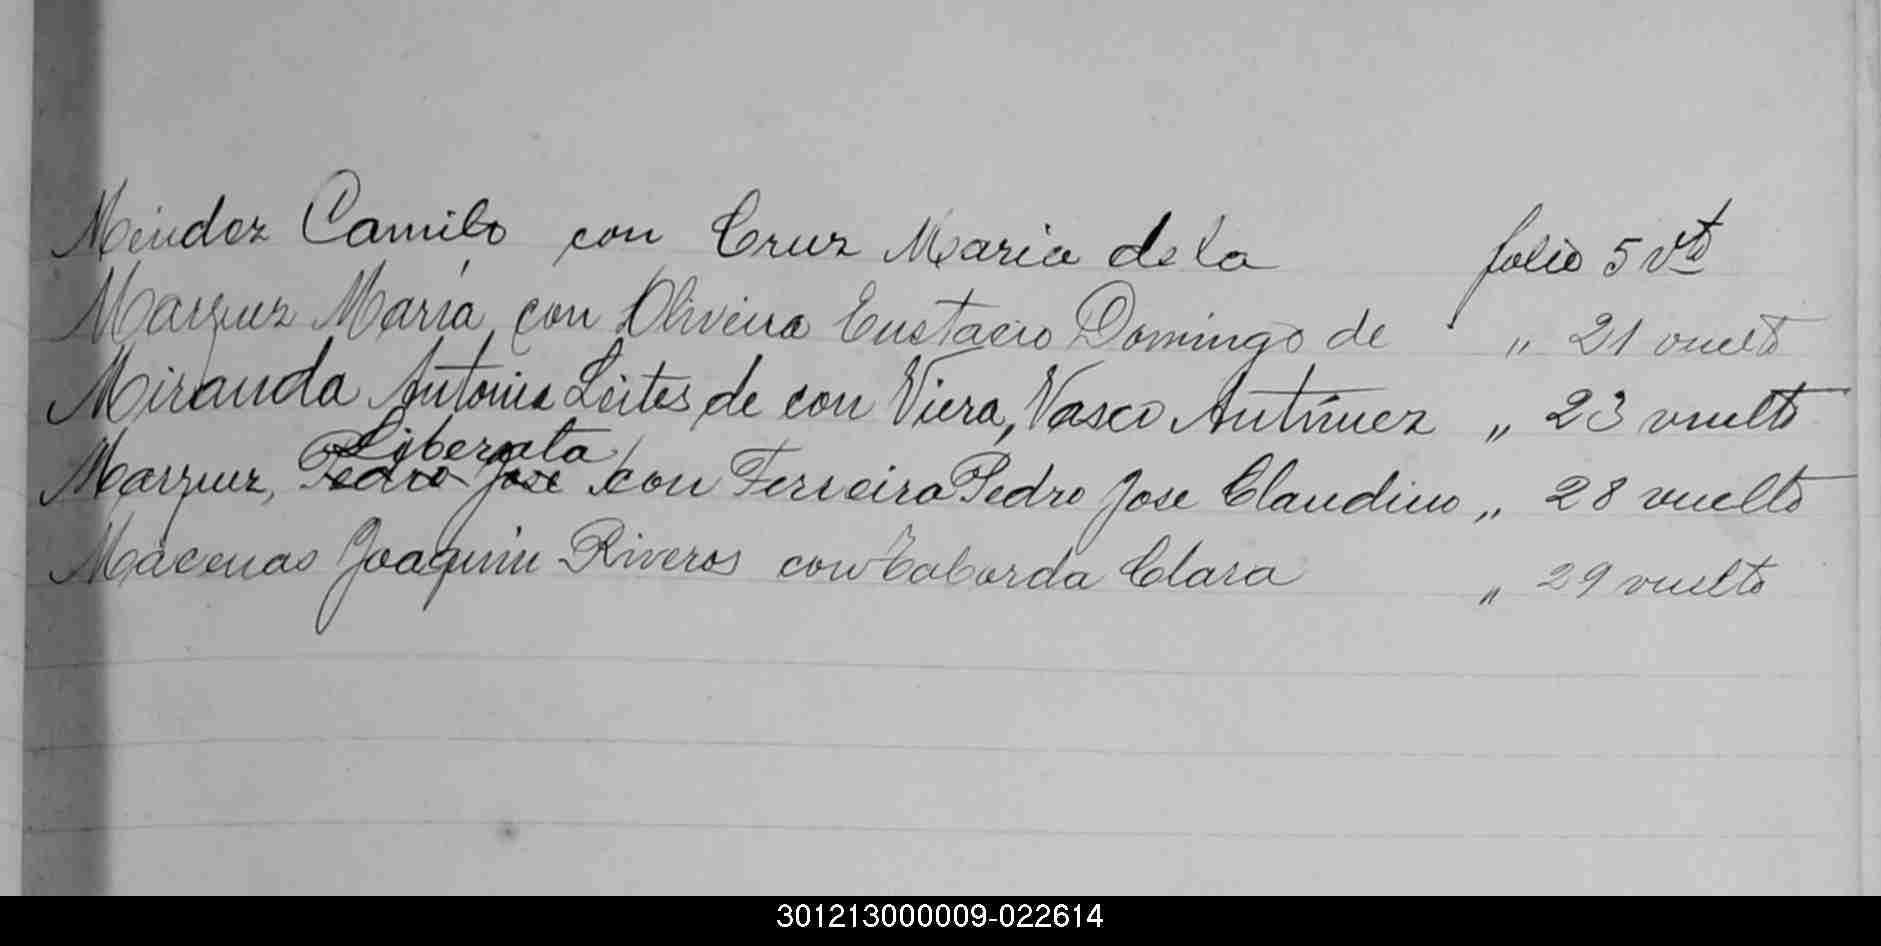 Méndez Camilo con Cruz Maria de la folio 5 vto
Marquez María, con Oliveira Eustacio Domingo de " 21 vuelto
Miranda Antonia Leites de con Viera, Vasco Antúnez " 23 vuelto
Liberata
Marquez, Pedro José con Ferreira Pedro Jose Claudino " 28 vuelto
Macenas Joaquin Riveros con Taborda Clara " 29 vuelto
301213000009-022614